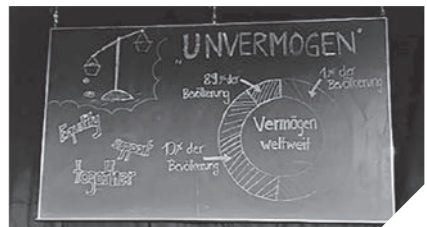 „UNVERMÖGEN"
89% der
Bevölkerung
1% der
Bevölkerung
Vermögen
weltweit
10% der
Bevölkerung
Equality
support
together